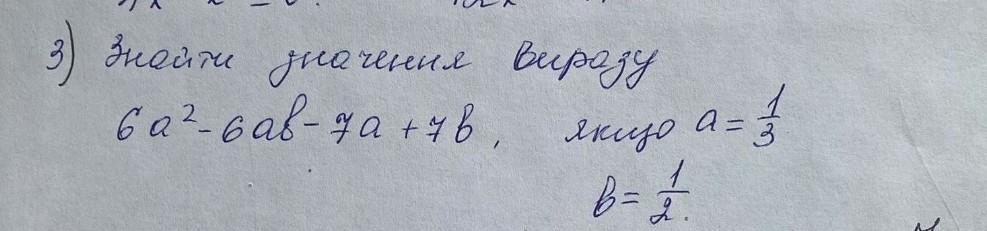 3) Знайти значення виразу
6a² - 6ab - 7a + 7b, якщо a = 1/3
b = 1/2.